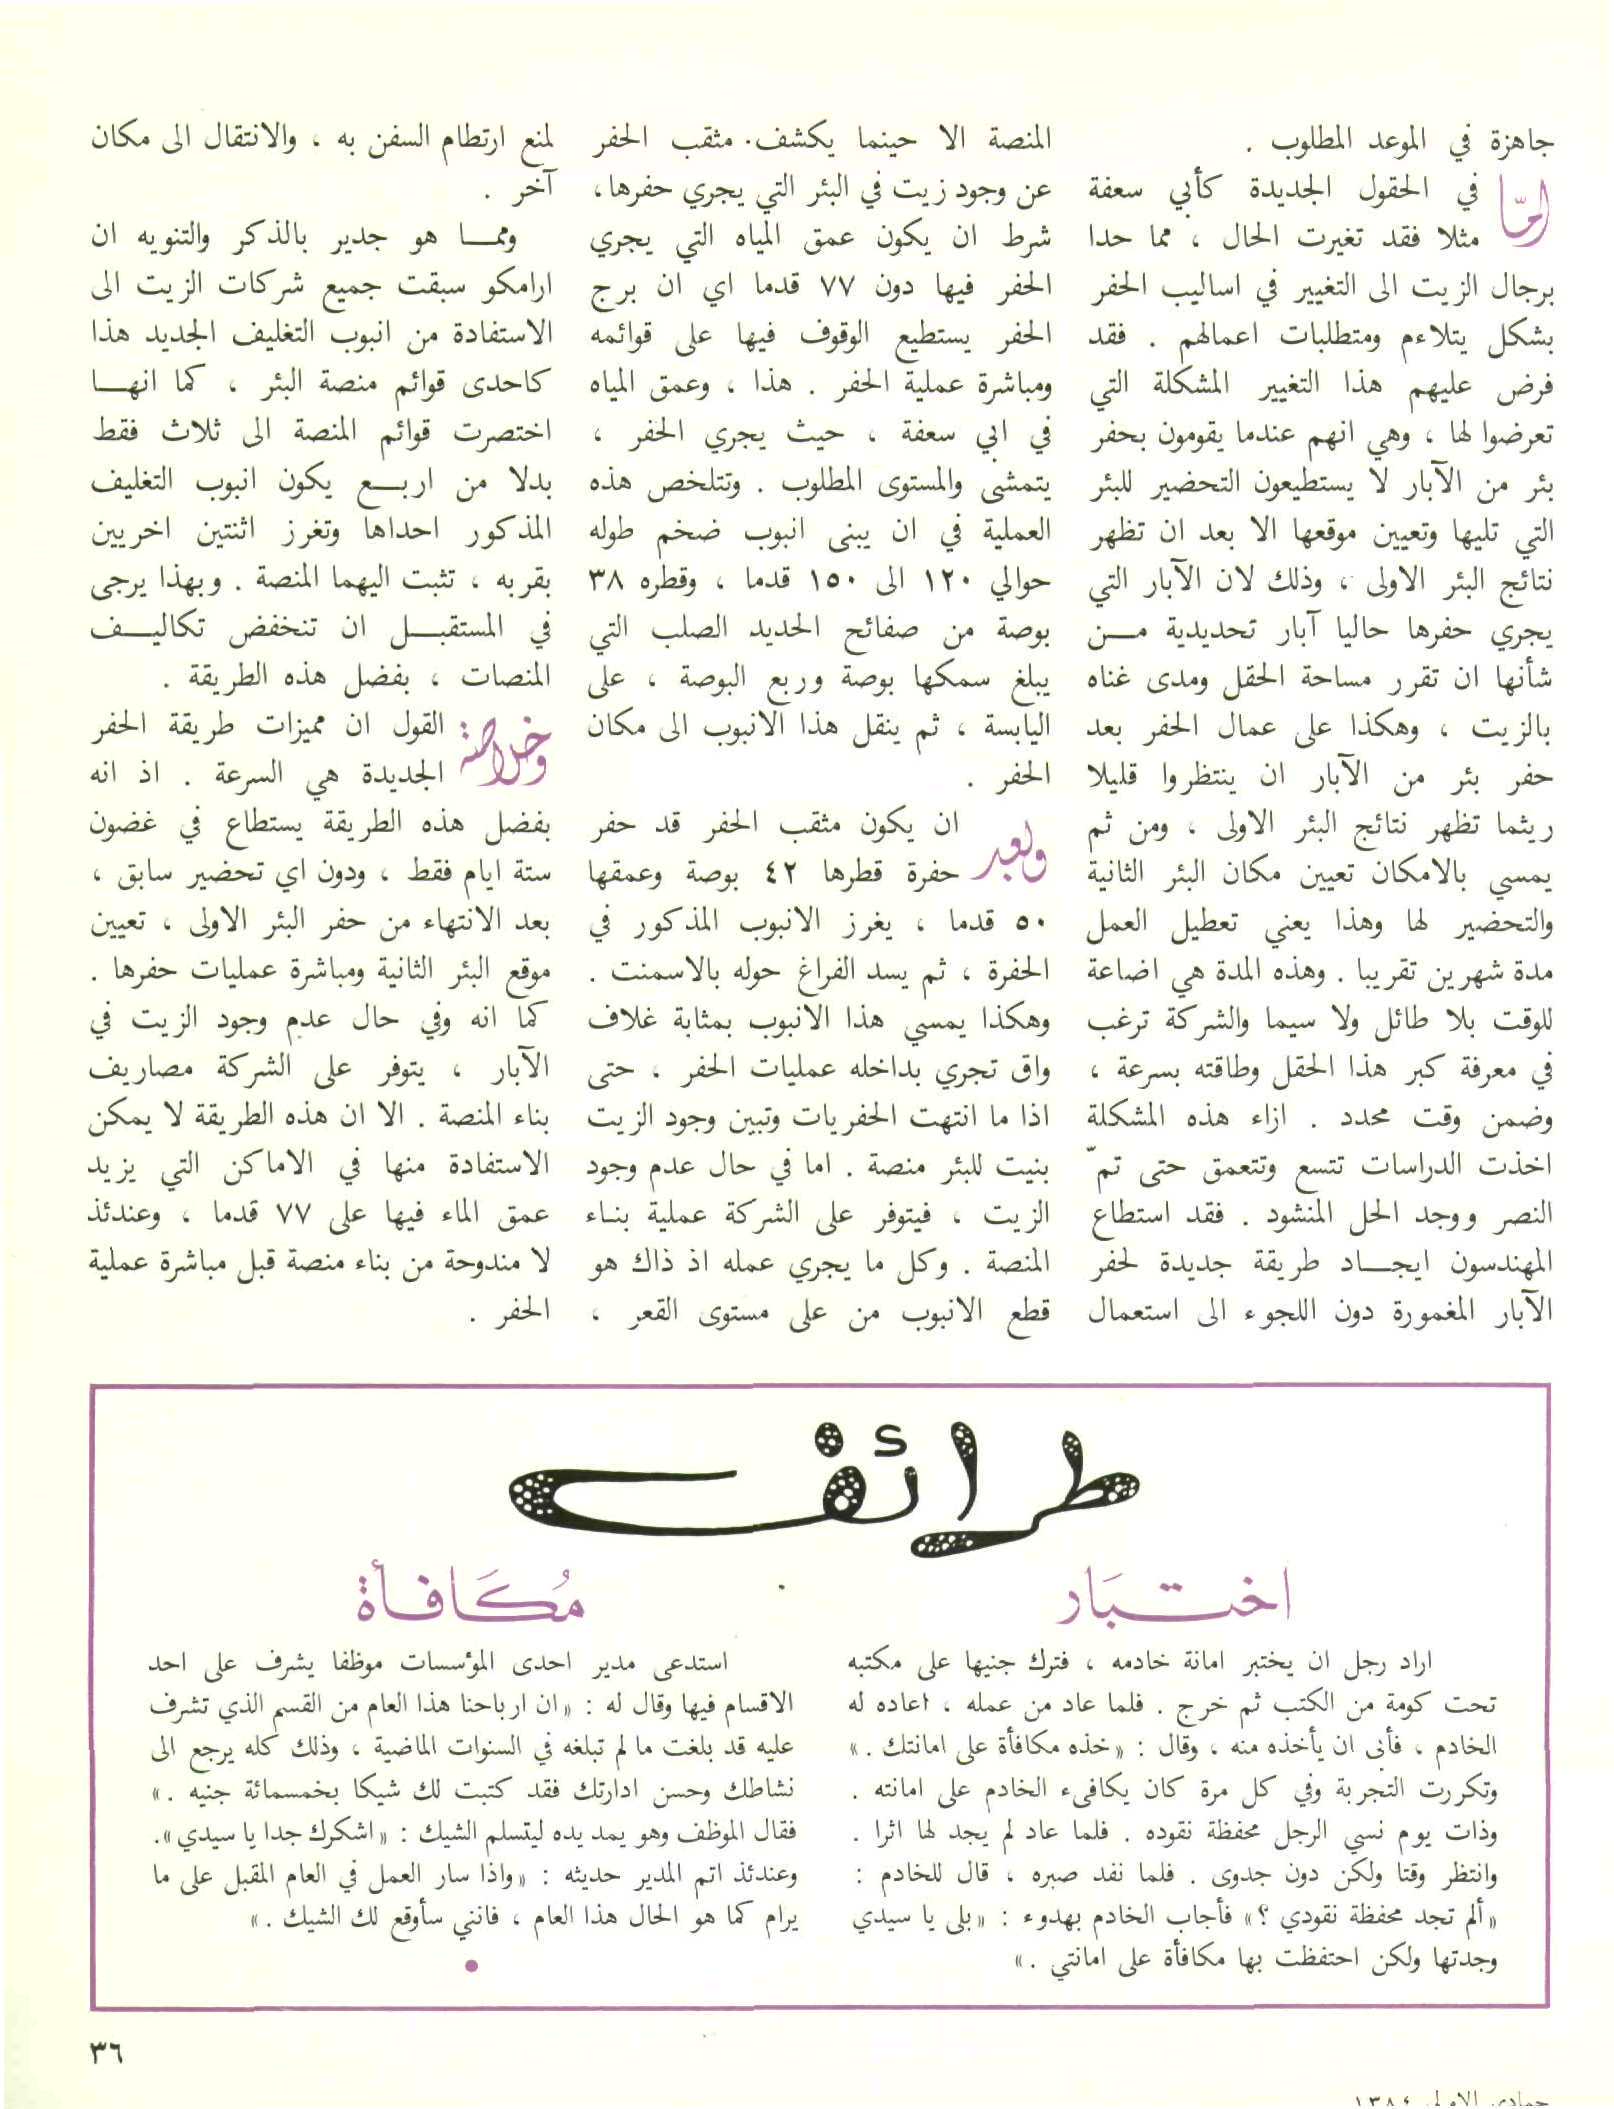 جاهزة في الموعد المطلوب .
امّا في الحقول الجديدة كأبي سعفة
مثلا فقد تغيرت الحال ، مما حدا
برجال الزيت الى التغيير في اساليب الحفر
بشكل يتلاءم ومتطلبات اعمالهم . فقد
فرض عليهم هذا التغيير المشكلة التي
تعرضوا لها ، وهي انهم عندما يقومون بحفر
بئر من الآبار لا يستطيعون التحضير للبئر
التي تليها وتعيين موقعها الا بعد ان تظهر
نتائج البئر الاولى ، وذلك لان الآبار التي
يجري حفرها حاليا آبار تحديدية مـــن
شأنها ان تقرر مساحة الحقل ومدى غناه
بالزيت ، وهكذا على عمال الحفر بعد
حفر بئر من الآبار ان ينتظروا قليلا
ريثما تظهر نتائج البئر الاولى ، ومن ثم
يمسي بالامكان تعيين مكان البئر الثانية
والتحضير لها وهذا يعني تعطيل العمل
مدة شهرين تقريبا . وهذه المدة هي اضاعة
للوقت بلا طائل ولا سيما والشركة ترغب
في معرفة كبر هذا الحقل وطاقته بسرعة ،
وضمن وقت محدد . ازاء هذه المشكلة
اخذت الدراسات تتسع وتتعمق حتى تمّ
النصر ووجد الحل المنشود . فقد استطاع
المهندسون ايجـــاد طريقة جديدة لحفر
الآبار المغمورة دون اللجوء الى استعمال
المنصة الا حينما يكشف. مثقب الحفر
عن وجود زيت في البئر التي يجري حفرها،
شرط ان يكون عمق المياه التي يجري
الحفر فيها دون ٧٧ قدما اي ان برج
الحفر يستطيع الوقوف فيها على قوائمه
ومباشرة عملية الحفر . هذا ، وعمق المياه
في ابي سعفة ، حيث يجري الحفر ،
يتمشى والمستوى المطلوب . وتتلخص هذه
العملية في ان يبنى انبوب ضخم طوله
حوالي ١٢٠ الى ١٥٠ قدما ، وقطره ٣٨
بوصة من صفائح الحديد الصلب التي
يبلغ سمكها بوصة وربع البوصة ، على
اليابسة ، ثم ينقل هذا الانبوب الى مكان
الحفر .
وبعد ان يكون مثقب الحفر قد حفر
حفرة قطرها ٤٢ بوصة وعمقها
٥٠ قدما ، يغرز الانبوب المذكور في
الحفرة ، ثم يسد الفراغ حوله بالاسمنت .
وهكذا يمسي هذا الانبوب بمثابة غلاف
واق تجري بداخله عمليات الحفر ، حتى
اذا ما انتهت الحفريات وتبين وجود الزيت
بنيت للبئر منصة . اما في حال عدم وجود
الزيت ، فيتوفر على الشركة عملية بنـاء
المنصة . وكل ما يجري عمله اذ ذاك هو
قطع الانبوب من على مستوى القعر ،
لمنع ارتطام السفن به ، والانتقال الى مكان
آخر .
وممــا هو جدير بالذكر والتنويه ان
ارامكو سبقت جميع شركات الزيت الى
الاستفادة من انبوب التغليف الجديد هذا
كاحدى قوائم منصة البئر ، كما انهــا
اختصرت قوائم المنصة الى ثلاث فقط
بدلا من اربــع يكون انبوب التغليف
المذكور احداها وتغرز اثنتين اخريين
بقربه ، تثبت اليهما المنصة . وبهذا يرجى
في المستقبــل ان تنخفض تكاليــف
المنصات ، بفضل هذه الطريقة .
وخلاصة القول ان مميزات طريقة الحفر
الجديدة هي السرعة . اذ انه
بفضل هذه الطريقة يستطاع في غضون
ستة ايام فقط ، ودون اي تحضير سابق ،
بعد الانتهاء من حفر البئر الاولى ، تعيين
موقع البئر الثانية ومباشرة عمليات حفرها .
كما انه وفي حال عدم وجود الزيت في
الآبار ، يتوفر على الشركة مصاريف
بناء المنصة . الا ان هذه الطريقة لا يمكن
الاستفادة منها في الاماكن التي يزيد
عمق الماء فيها على ٧٧ قدما ، وعندئذ
لا مندوحة من بناء منصة قبل مباشرة عملية
الحفر .
طرائف
اختـــبَار
اراد رجل ان يختبر امانة خادمه ، فترك جنيها على مكتبه
تحت كومة من الكتب ثم خرج . فلما عاد من عمله ، اعاده له
الخادم ، فأبى ان يأخذه منه ، وقال : «خذه مكافأة على امانتك .»
وتكررت التجربة وفي كل مرة كان يكافىء الخادم على امانته .
وذات يوم نسي الرجل محفظة نقوده . فلما عاد لم يجد لها اثرا .
وانتظر وقتا ولكن دون جدوى . فلما نفد صبره ، قال للخادم :
«ألم تجد محفظة نقودي ؟» فأجاب الخادم بهدوء : «بلى يا سيدي
وجدتها ولكن احتفظت بها مكافأة على امانتي .»
مُكَافـأة
استدعى مدير احدى المؤسسات موظفا يشرف على احد
الاقسام فيها وقال له : «ان ارباحنا هذا العام من القسم الذي تشرف
عليه قد بلغت ما لم تبلغه في السنوات الماضية ، وذلك كله يرجع الى
نشاطك وحسن ادارتك فقد كتبت لك شيكا بخمسمائة جنيه .»
فقال الموظف وهو يمد يده ليتسلم الشيك : «اشكرك جدا يا سيدي».
وعندئذ اتم المدير حديثه : «واذا سار العمل في العام المقبل على ما
يرام كما هو الحال هذا العام ، فانني سأوقع لك الشيك .»
٣٦
جمادى الاولى ١٣٨٤